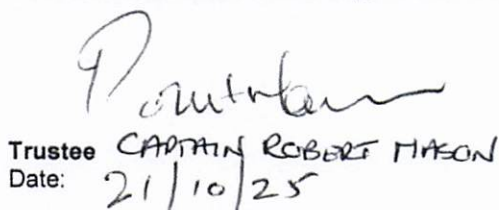 Trustee CAPTAIN ROBERT MASON
Date: 21/10/25